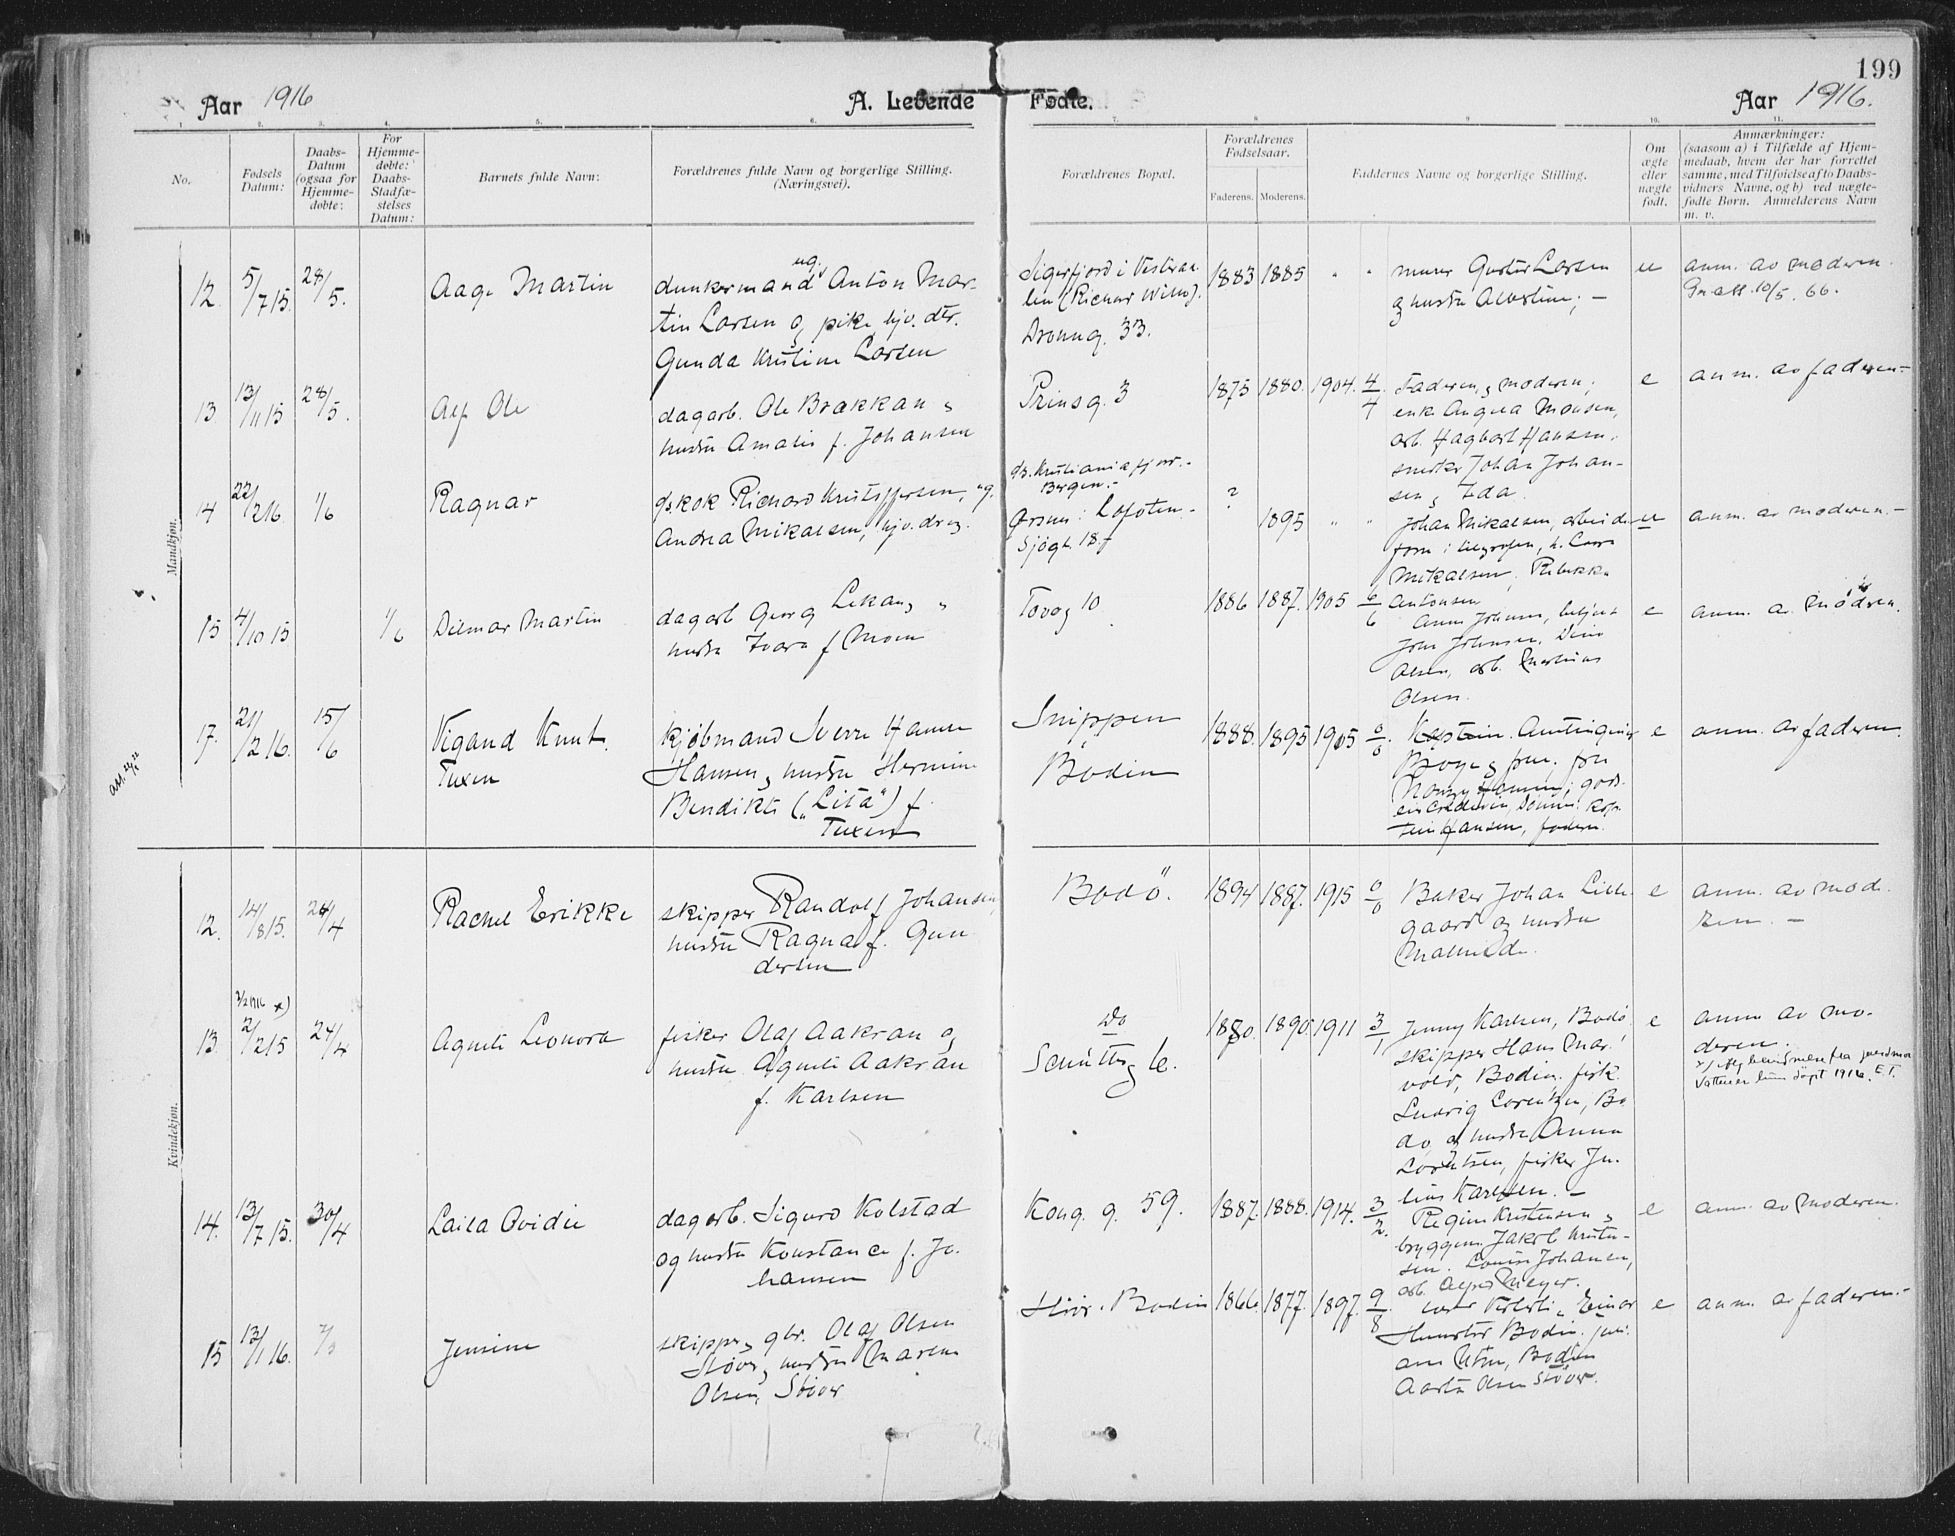 199
Aar 1916
A. Levende
Fødte.
Aar 1916.
1. 2. 3. 4. 5. 6. 7. 8. 9. 10. 11.
No.
Fødsels
Datum:
Daabs-
Datum
(ogsaa for
Hjemme-
døbte:
For
Hjemme-
døbte:
Daabs-
Stadfæ-
stelses
Datum:
Barnets fulde Navn:
Forældrenes fulde Navn og borgerlige Stilling.
(Næringsvei).
Forældrenes Bopæl.
Forældrenes
Fødselsaar.
Faderens. Moderens.
Faddernes Navne og borgerlige Stilling.
Om
ægte
eller
nægte
født.
Anmærkninger:
(saasom a) i Tilfælde af Hjem-
medaab, hvem der har forrettet
samme, med Tilføielse af to Daabs-
vidners Navne, og b) ved nægte-
fødte Børn. Anmelderens Navn
m. v.
Mandkjøn.
12. 5/7 15. 28/5. Aage Martin
ug.
dunkermand Anton Mar-
tin Larsen og pike hjv. dtr.
Gunda Kristine Larsen
Sigerfjord i Vesteraa-
len
Dronng. 33.
1883 1885 " "
murer Gustav Larsen
og hustru Albertine; —
u
anm. av moderen.
10/5. 66.
13 13/11 15 28/5. Alf Ole
dagarb. Ole Brækkan og
hustru Amalie f. Johansen
Prinsg. 3
1875 1880. 1904. 4/7
Faderen og moderen;
enke Angna Monsen,
arb. Hagbart Hansen,
snedker Johan Johan-
sen og Ida.
e
anm. av faderen-
14 22/2 16. 1/6 Ragnar
ds. kok Richard Kristoffersen, ug.
Andrea Mikaelsen, hjv. dreg.
ds. Kristianiafjord.-
Bergen.-
Ørsnes i Lofoten-
Sjøgt. 18.-
? 1895 " "
Johan Mikaelsen, arbeids-
form. i telegrafen, h. Laura
Mikaelsen, Rebekka
Antonsen
u
anm. av moderen.-
15 4/10 15 1/6 Dilmar Martin
dagarb Georg Lekang og
hustru Ivara f Moen
Tovg 10.
1886 1887. 1905 6/6
Anna Johnsen, betjent
Jens Johnsen. Dina
Olsen, arb. Markus
Olsen.
e
anm. av moderen.
17. 21/2 16. 15/6 Vigand Knut.
Tuxen
kjøbmand Sverre Hamre
Hansen og hustru Hermine
Bendikte ("Lita") f.
Tuxen
Snippen
Bodin
1888. 1895 1905 0/0.
Kaptein. Amtingeniør
Boye og frue. frøk
Hansen, faderen.
e
anm. av faderen.
Kvindekjøn.
12. 14/8 15. 24/4 Rachel Erikke
skipper Randolf Johansen,
hustru Ragna f. Gun
dersen
Bodö.
1894 1887. 1915 0/0
Baker Johan Lille-
gaard og hustru
Mathilde.
e
anm. av mod.
eren. —
2/2 1916 x)
13. 2/2 15 24/4 Agnete Leonora
fisker Olaf Aakran og
hustru Agnete Aakran
f. Karlsen
Do
Schütteg 6.
1880. 1890. 1911 3/1
Jenny Karlsen, Bodø
skipper Hans Mar.
vold, Bodin. fisk.
Ludvig Lorentzen, Bo
dø og hustru Anna
Lorentsen, fisker Ju-
lius Karlsen. -
e
anm av mo-
deren.
x)
døpt 1916. E.T.
14. 13/7 15. 30/4 Laila Ovidie
dagarb. Sigurd Kolstad
og hustru Konstance f. Jo.
hansen
Kong. g. 59.
1887. 1888. 1914. 3/2.
Regine Kristensen og
bryggem. Jakob Kristen-
sen. Louise Johansen,
arb. Alfred Meyer.
e
anm. av moderen.
15 13/1 16. 7/5 Jensine
skipper og gbr. Olaf Olsen
Støver og hustru Maren
Olsen, Støver
Støver. Bodin
1866. 1877. 1897. 9/8
Einar
Bodin.
Bodin
Aasta Olsen Støver.
e
anm. av faderen.-